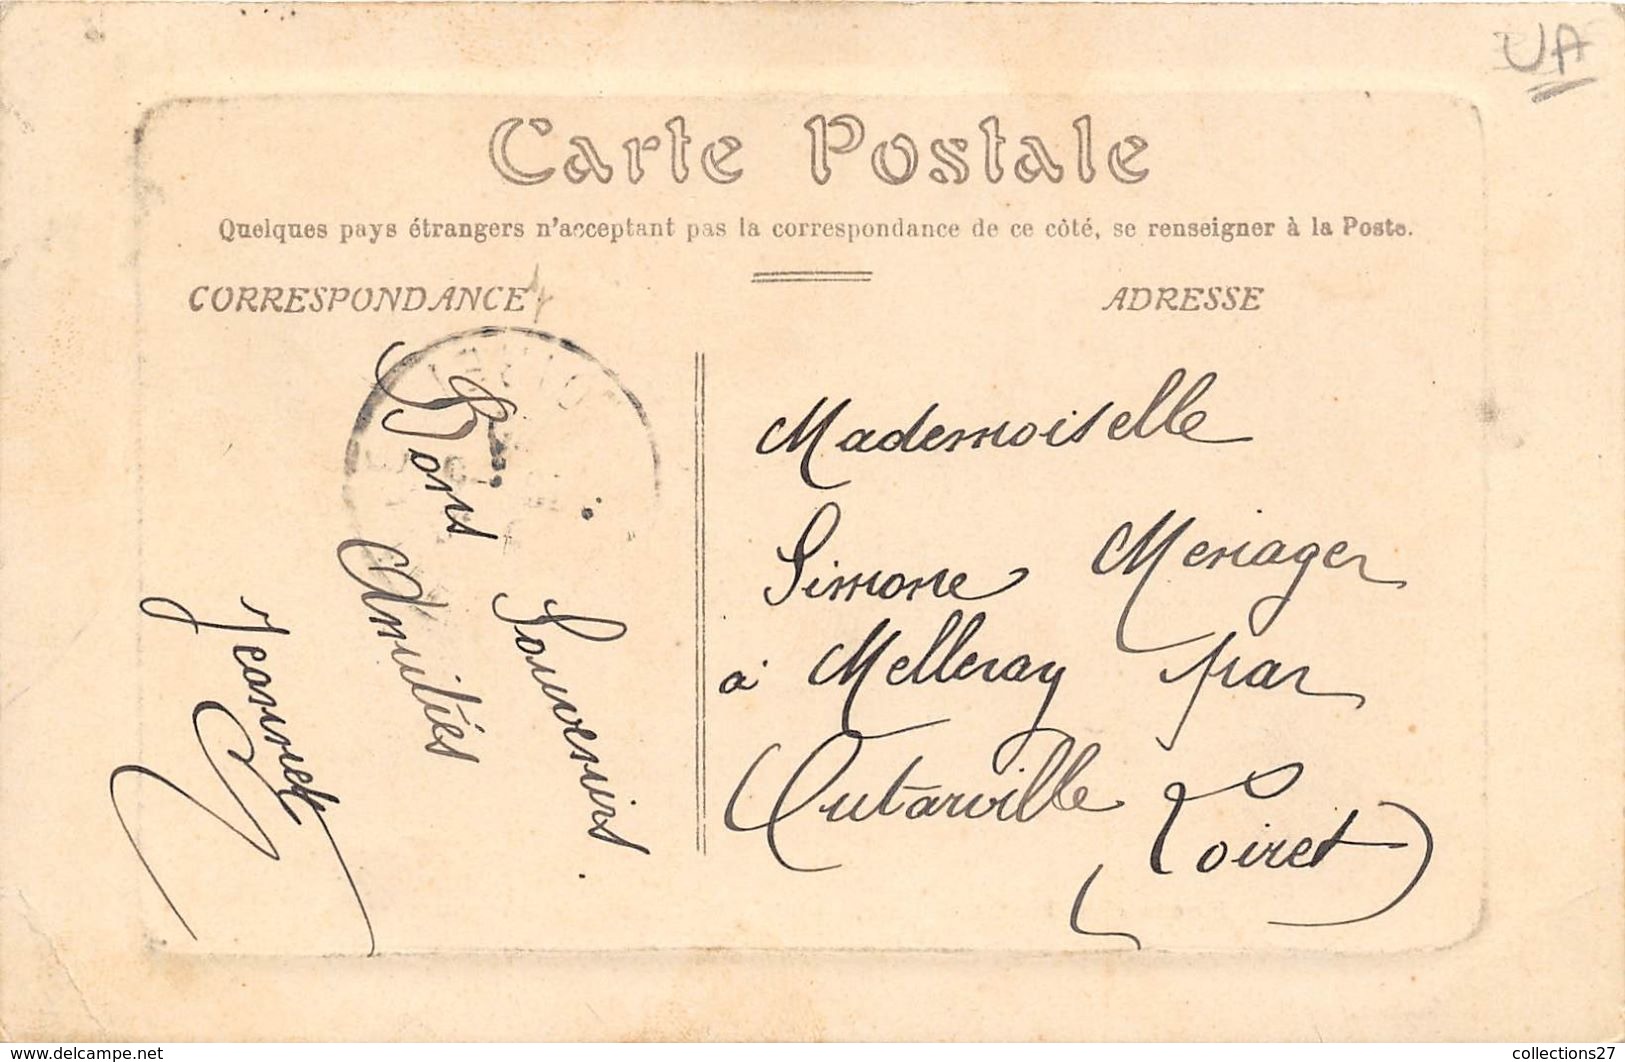 UA
Carte Postale
Quelques pays étrangers n'acceptant pas la correspondance de ce côté, se renseigner à la Poste.
CORRESPONDANCE
ADRESSE
Bons Souvenirs.
Amitiés
Jeannet
Mademoiselle
Simone Menager
à Melleray par
Outarville
(Loiret)
www.delcampe.net
collections27